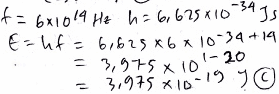 f = 6×10¹⁴ Hz h = 6,625×10⁻³⁴ Js
E = hf = 6,625×6×10⁻³⁴⁺¹⁴
= 3,975×10¹⁻²⁰
= 3,975×10⁻¹⁹ J (C)